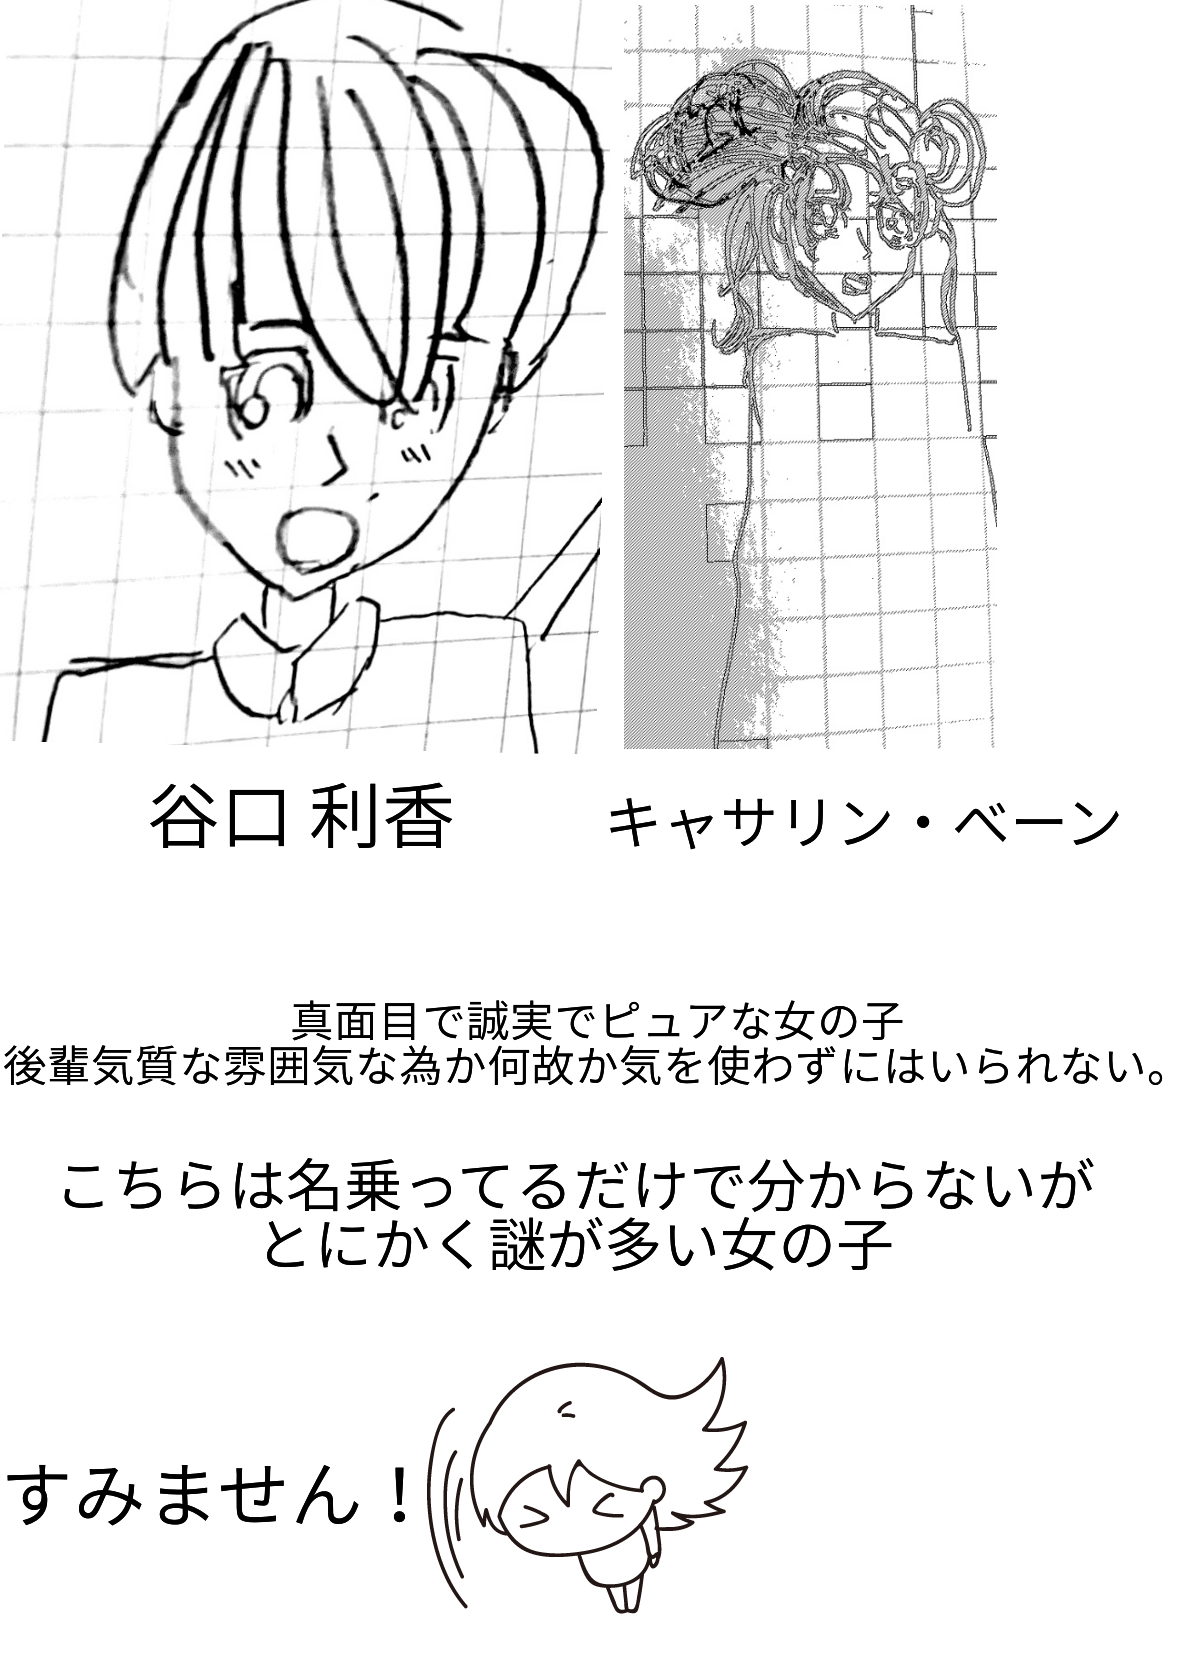 谷口 利香
キャサリン・ベーン
真面目で誠実でピュアな女の子
後輩気質な雰囲気な為か何故か気を使わずにはいられない。
こちらは名乗ってるだけで分からないが
とにかく謎が多い女の子
すみません！